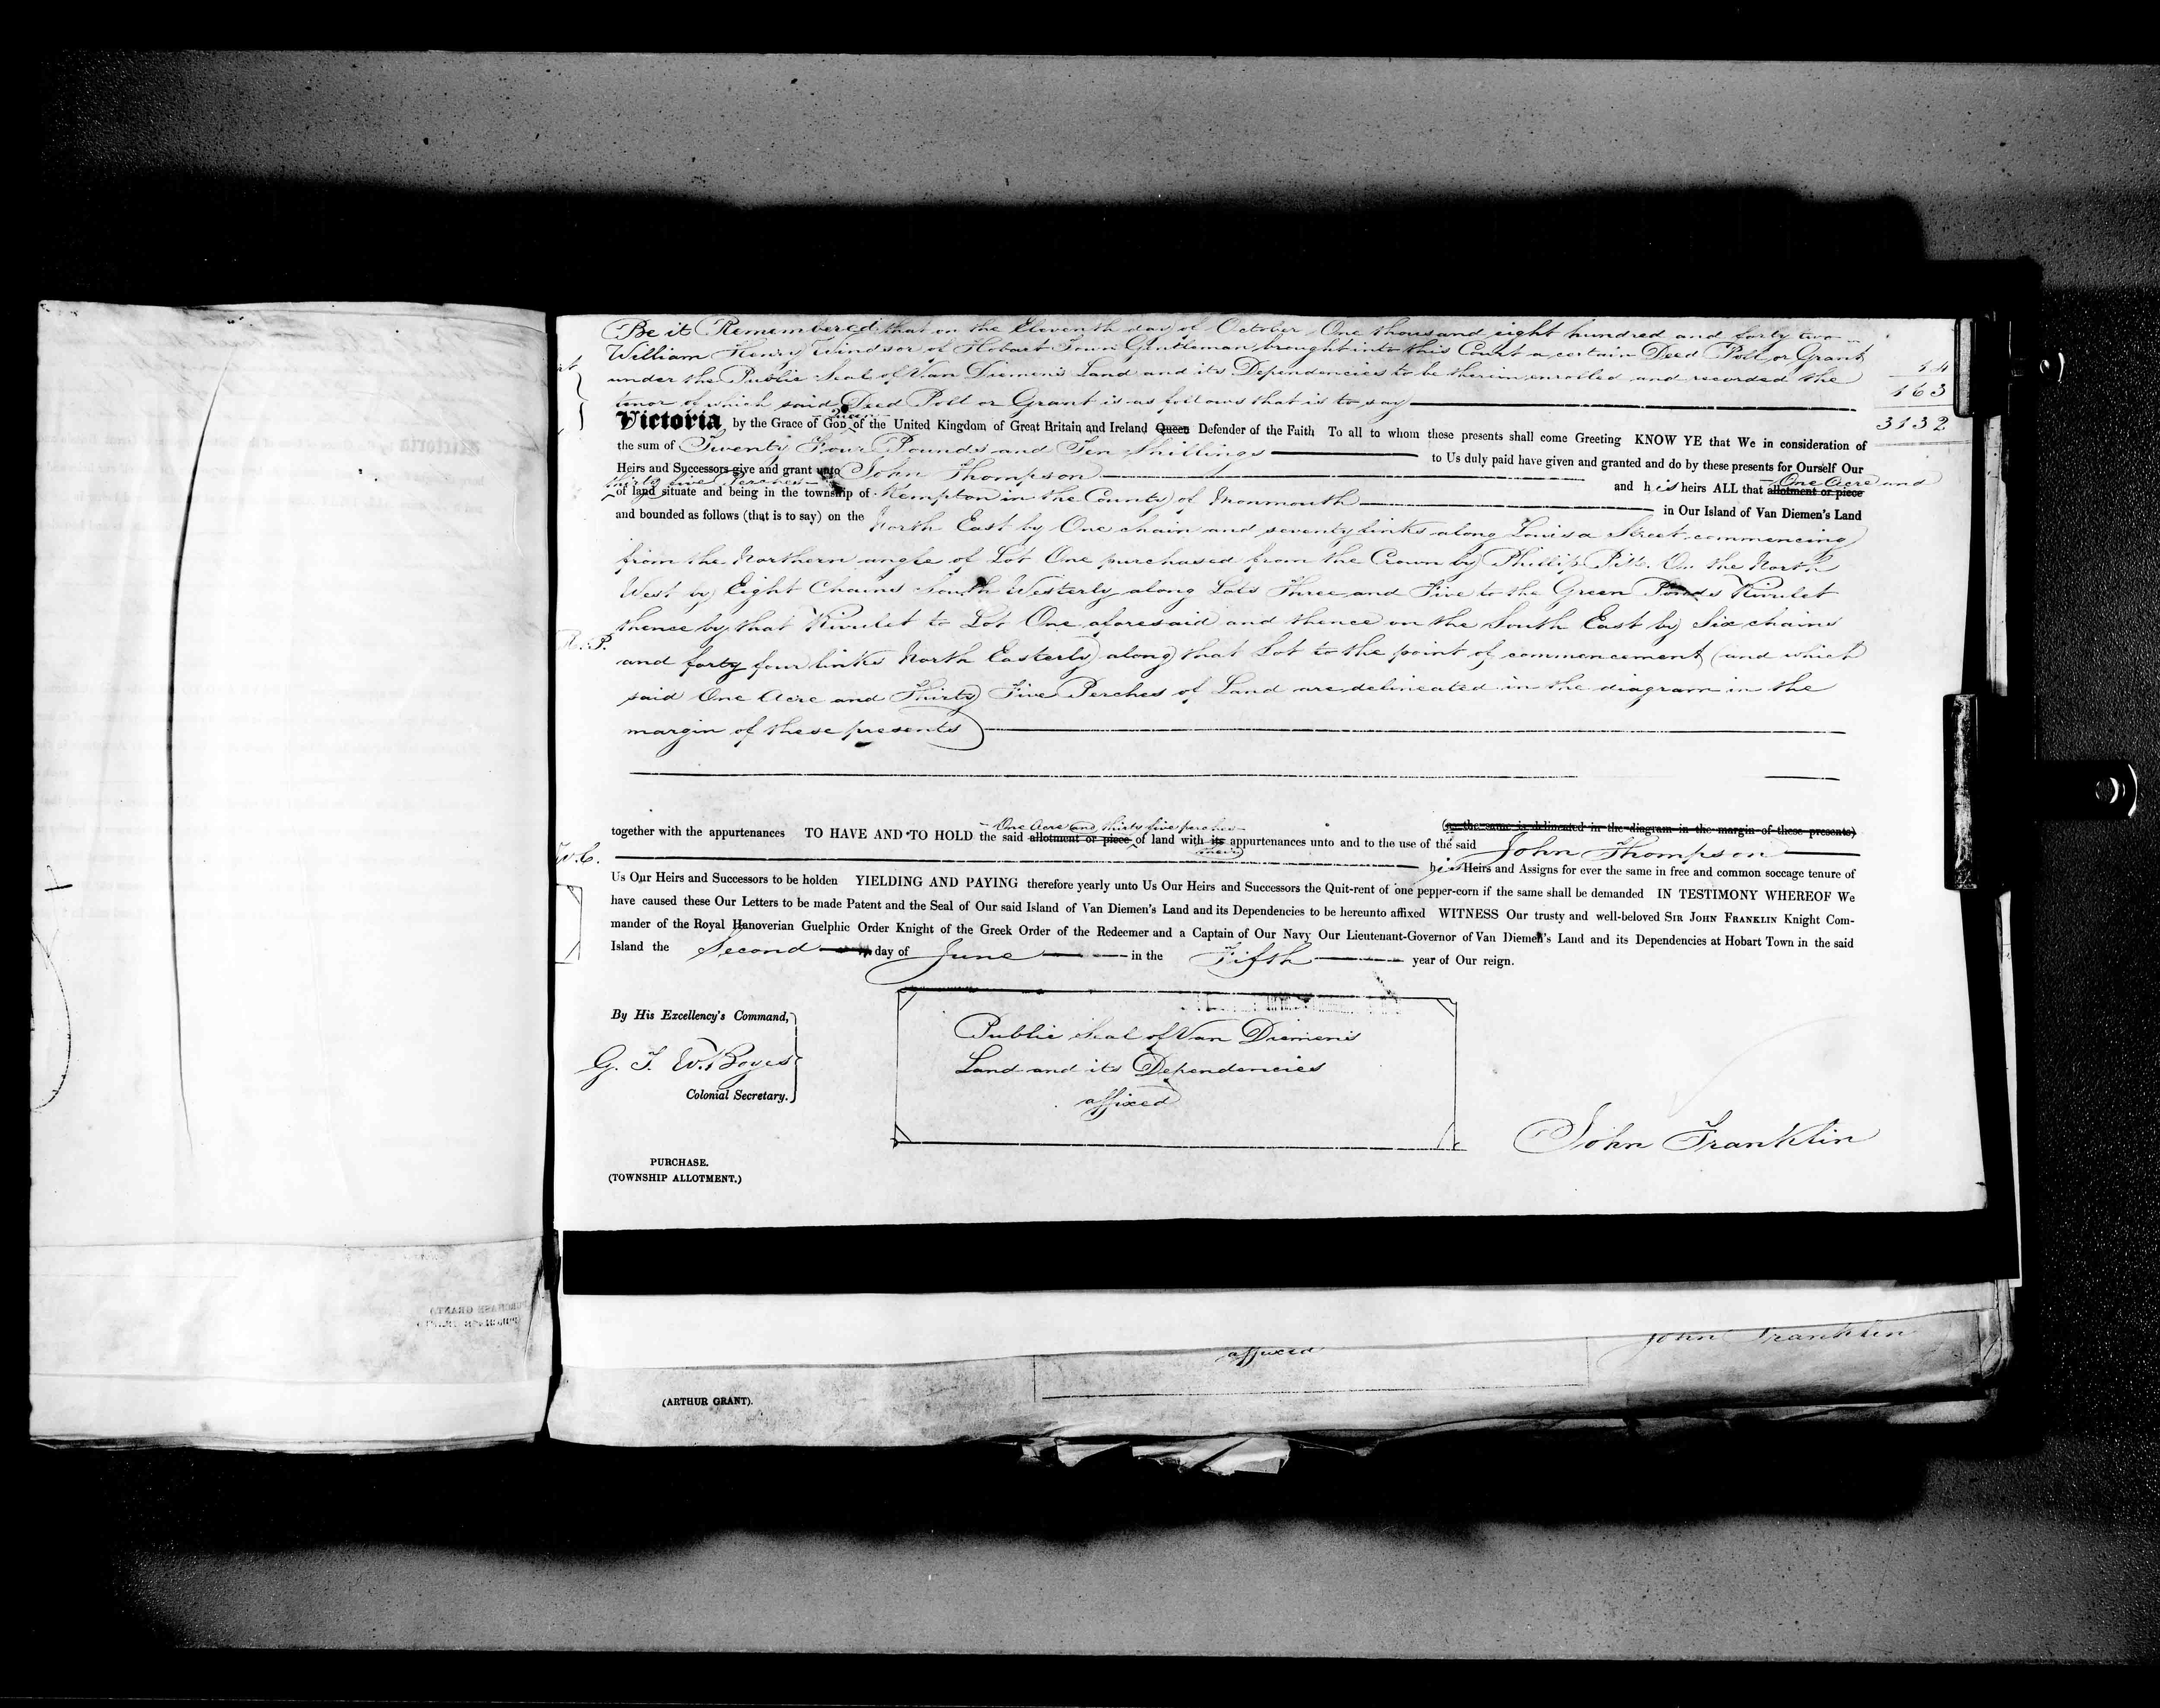 Be it Remembered that on the Eleventh day of October One thousand eight hundred and forty two
William Henry Windsor of Hobart Town Gentleman brought into this Court a certain Deed Poll or Grant
under the Public Seal of Van Diemen's Land and its Dependencies to be therein enrolled and recorded the
tenor of which said Deed Poll or Grant is as follows that is to say
14
163
3132
Queen
Victoria by the Grace of God of the United Kingdom of Great Britain and Ireland Queen Defender of the Faith To all to whom these presents shall come Greeting KNOW YE that We in consideration of
the sum of Twenty Four Pounds and Ten Shillings to Us duly paid have given and granted and do by these presents for Ourself Our
Heirs and Successors give and grant unto John Thompson and his heirs ALL that allotment or piece
One Acre and
thirty five Perches
of land situate and being in the township of Kempton in the County of Monmouth in Our Island of Van Diemen's Land
and bounded as follows (that is to say) on the North East by One chain and seventy links along Louisa Street commencing
from the Northern angle of Lot One purchased from the Crown by Phillip Pitt. On the North
West by Eight Chains South Westerly along Lots Three and Five to the Green Ponds Rivulet
thence by that Rivulet to Lot One aforesaid and thence on the South East by Six chains
and forty four links North Easterly along that Lot to the point of commencement (and which
said One Acre and Thirty Five Perches of Land are delineated in the diagram in the
margin of these presents)
(as the same is delineated in the diagram in the margin of these presents)
One Acre and thirty five perches
together with the appurtenances TO HAVE AND TO HOLD the said allotment or piece of land with its appurtenances unto and to the use of the said John Thompson
their
his Heirs and Assigns for ever the same in free and common soccage tenure of
Us Our Heirs and Successors to be holden YIELDING AND PAYING therefore yearly unto Us Our Heirs and Successors the Quit-rent of one pepper-corn if the same shall be demanded IN TESTIMONY WHEREOF We
have caused these Our Letters to be made Patent and the Seal of Our said Island of Van Diemen's Land and its Dependencies to be hereunto affixed WITNESS Our trusty and well-beloved SIR JOHN FRANKLIN Knight Com-
mander of the Royal Hanoverian Guelphic Order Knight of the Greek Order of the Redeemer and a Captain of Our Navy Our Lieutenant-Governor of Van Diemen's Land and its Dependencies at Hobart Town in the said
Island the Second day of June in the Fifth year of Our reign.
By His Excellency's Command,
G. T. W. Boyes
Colonial Secretary.
Public Seal of Van Diemen's
Land and its Dependencies
affixed
John Franklin
PURCHASE.
(TOWNSHIP ALLOTMENT.)
affixed
John Franklin
(ARTHUR GRANT).